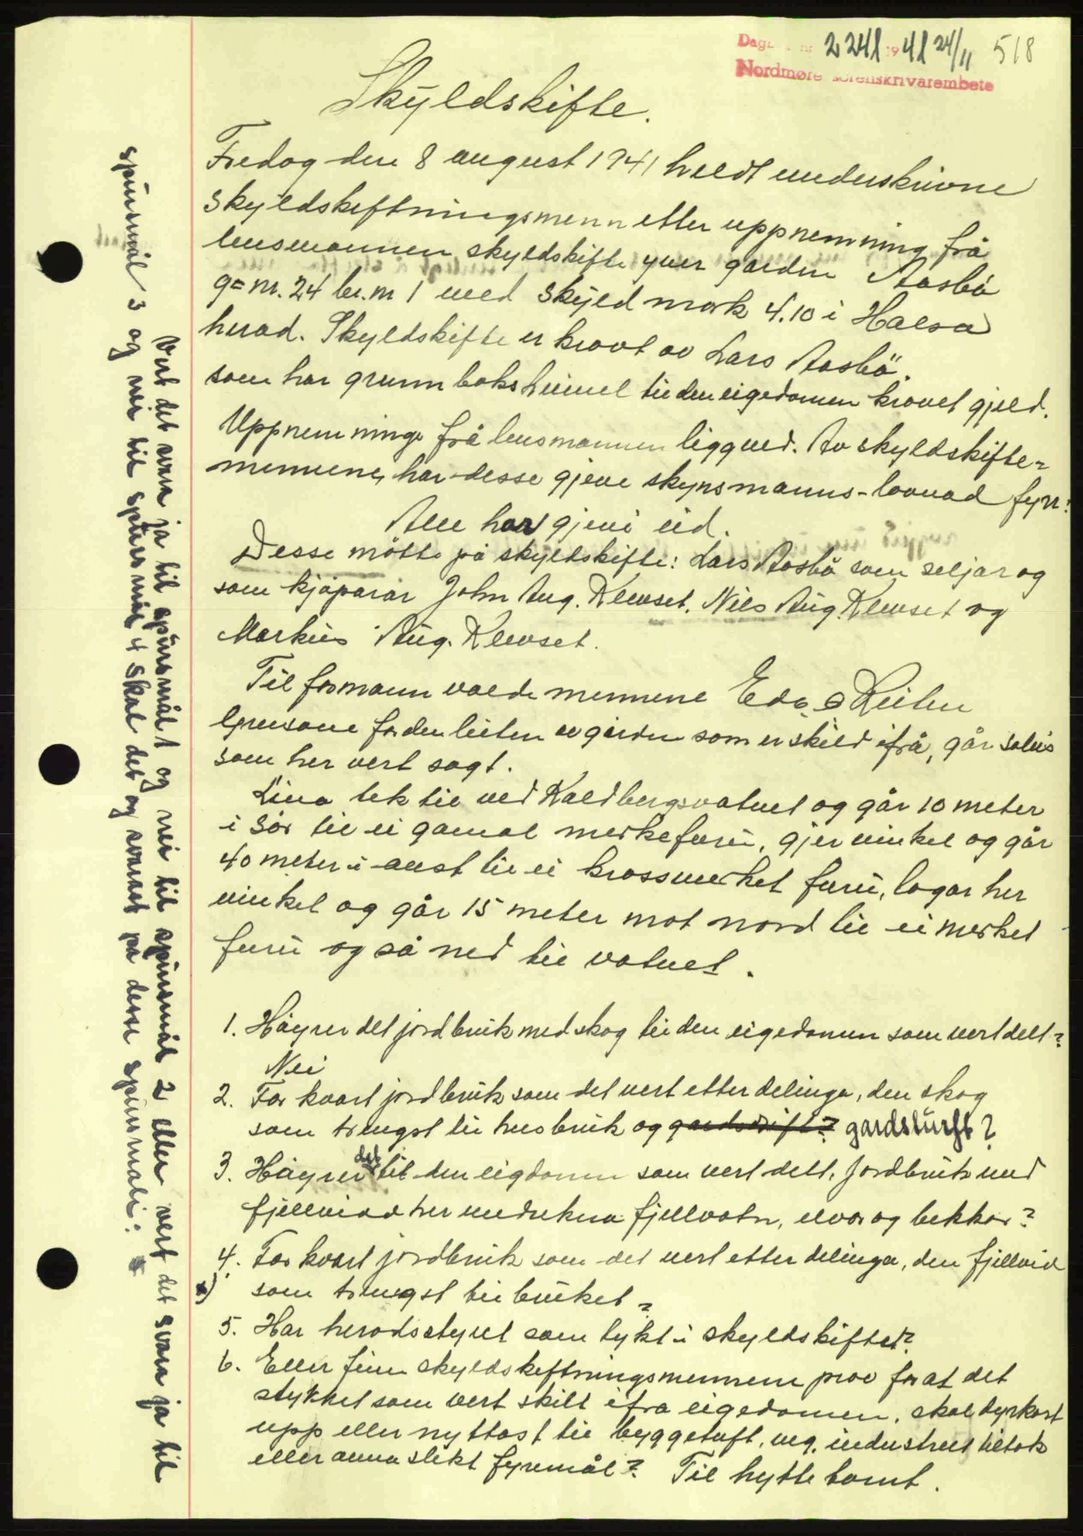 Dagb. nr. 2241 1941 24/11 518
Nordmøre sorenskrivarembete
Skyldskifte.
Fredag den 8 august 1941 heldt underskrivne
skyldskiftningsmenn etter uppnemning frå
lensmannen skyldskifte yver garden Aasbø
g=nr. 24 br.nr 1 med skyld mark 4.10 i Halsa
herad. Skyldskifte er kravt av Lars Aasbø.
som har grunnboksheimel til den eigedomen kravet gjeld.
Uppnemninga frå lensmannen ligg ved. Av skyldskifte=
mennene har desse gjeve skynsmanns-lovnad fyrr:
Alle har gjevi eid.
Desse møtte på skyldskifte: Lars Aasbø som seljar og
som kjøparar John Aug. Klevset, Nils Aug. Klevset og
Markus Aug. Klevset.
Til formann valde mennene
Grensone for den luten av garden som er skild ifrå, går soleis
som her vert sagt.
Lina tek til ved Kaldbergsvatnet og går 10 meter
i sør til ei gamal merkefuru, gjer vinkel og går
40 meter i aust til ei krossmerket furu, lagar her
vinkel og går 15 meter mot nord til ei merket
furu og så ned til vatnet.
1. Høyrer det jordbruk med skog til den eigedomen som vert delt?
Nei
2. Før kvart jordbruk som det vert etter delinga, den skog
som trengst til husbruk og gardsdrift? gardsturft?
3. Høyrer det til den eigdomen som vert delt, jordbruk med
fjellvidd her medrekna fjellvatn, elvar og bekkar?
4. Før kvart jordbruk som det vert etter delinga, den fjellvid
x) som trengst til bruket?
5. Har heradsstyret samtykt i skyldskiftet?
6. Eller finn skyldskiftningsmennene prov for at det
stykket som vert skilt ifra eigedomen, skal dyrkast
upp eller nyttast til byggetuft, veg, industrielt tiltak
eller anna slikt fyremål? Til hyttetomt.
x) Vert det svara ja til spursmål 1 og nei til spursmål 2 eller vert det svara ja til
spursmål 3 og nei til spursmål 4 skal det og svarast på desse spursmåli: